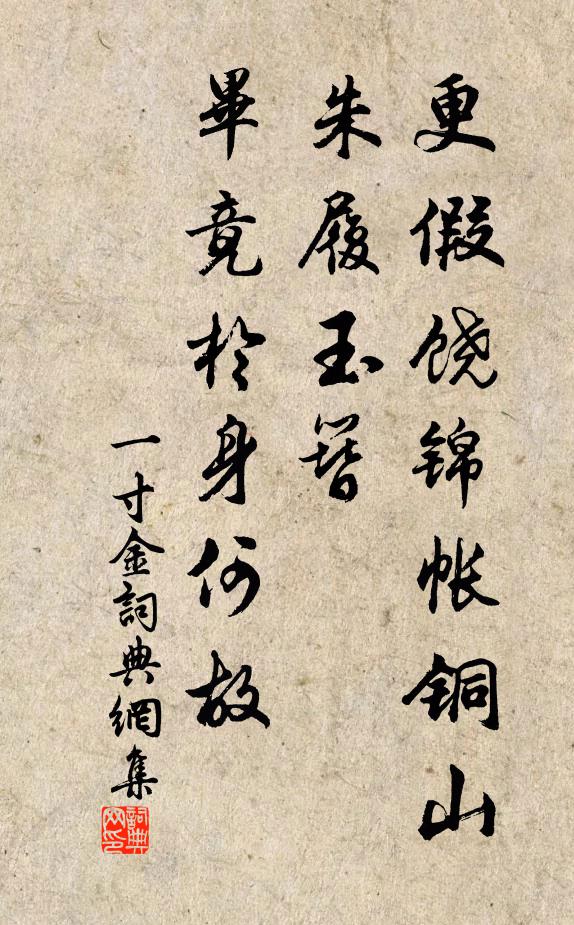 更假饶锦帐铜山
朱履玉簪
畢竟於身何故
一寸金詞典網集
詞典
网印